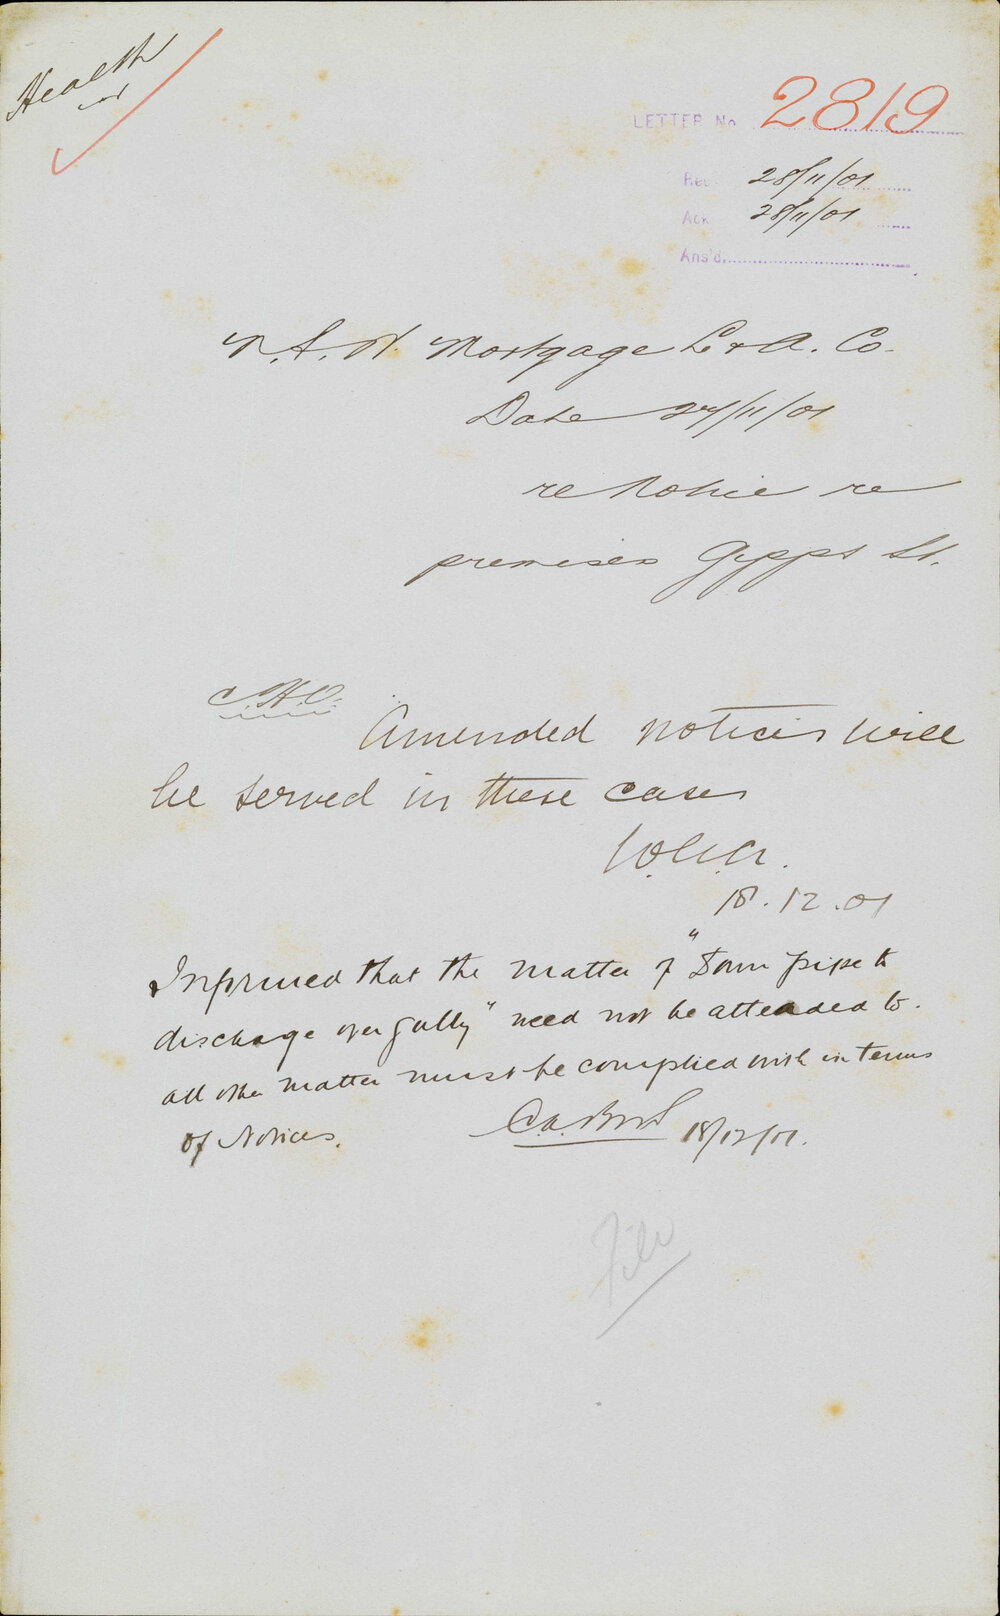 Health
LETTER No 2819
Rec. 28/11/01
Ack 28/11/01
Ans'd
N.S.W. Mortgage L & A. Co.
Date 27/11/01
re Notice re
premises Gipps St.
C.H.O.
Amended notices will
be served in these cases
18.12.01
Informed that the matter of "Down pipe to
discharge over gully" need not be attended to.
all other matter must be complied with in terms
of Notices.
18/12/01.
File